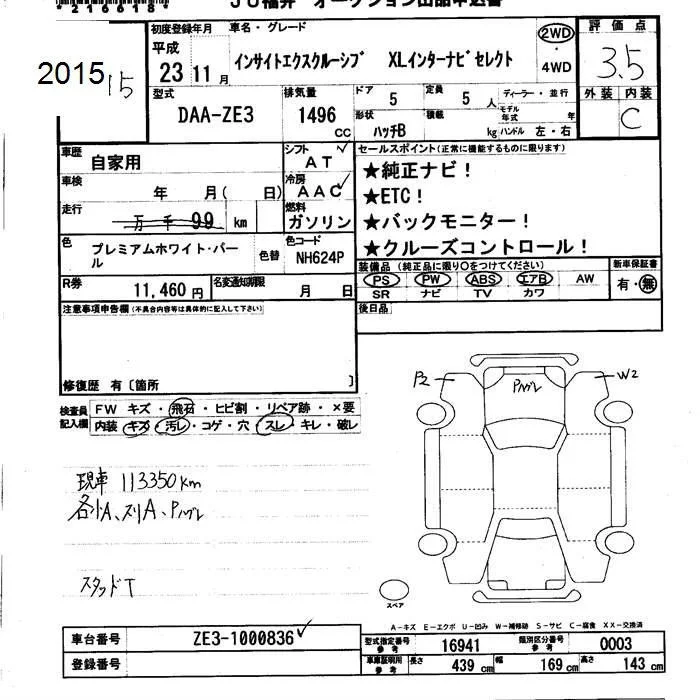 *216618*
JU福井 オークション出品申込書
2015
15
初度登録年月 車名・グレード
平成
23 11月 インサイトエクスクルーシブ XLインターナビセレクト
2WD
・
4WD
評価点
3.5
外装 内装
C
型式 DAA-ZE3
排気量 1496 CC
ドア 5 定員 5 人
形状 ハッチB 積載 kg
ディーラー・並行
モデル年式 年
ハンドル 左・右
車歴 自家用
シフト AT
車検 年 月( 日)
冷房 AAC
走行 万千99 km
燃料 ガソリン
色 プレミアムホワイト・パール 色替
色コード NH624P
R券 11,460円
名変通知期限 月 日
セールスポイント(正常に機能するものに限ります)
★純正ナビ!
★ETC!
★バックモニター!
★クルーズコントロール!
装備品(純正品に限り○をつけてください)
PS PW ABS エアB AW
SR ナビ TV カワ
新車保証書
有・無
注意事項申告欄(不具合内容等は具体的に記入して下さい)
後日品
修復歴 有〔箇所 〕
検査員記入欄
FW キズ・飛石・ヒビ割・リペア跡・×要
内装 キズ・汚レ・コゲ・穴・スレ・キレ・破レ
現車 113350km
各小A、スリA、Pハグレ
スタッドT
P2
Pハグレ
W2
スペア
A-キズ E-エクボ U-凹み W-補修跡 S-サビ C-腐食 XX-交換済
車台番号 ZE3-1000836
登録番号
型式指定番号 参考 16941
類別区分番号 参考 0003
車庫証明用 参考 長さ 439 cm 幅 169 cm 高さ 143 cm